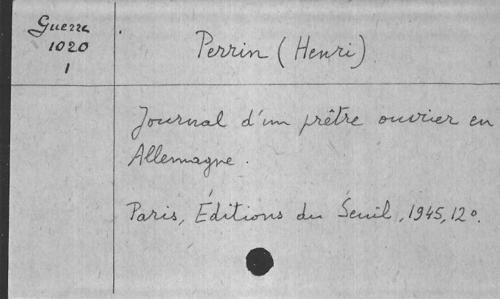 Guerre
1020
1
Perrin (Henri)
Journal d'un prêtre ouvrier en
Allemagne.
Paris, Éditions du Seuil, 1945, 12°.